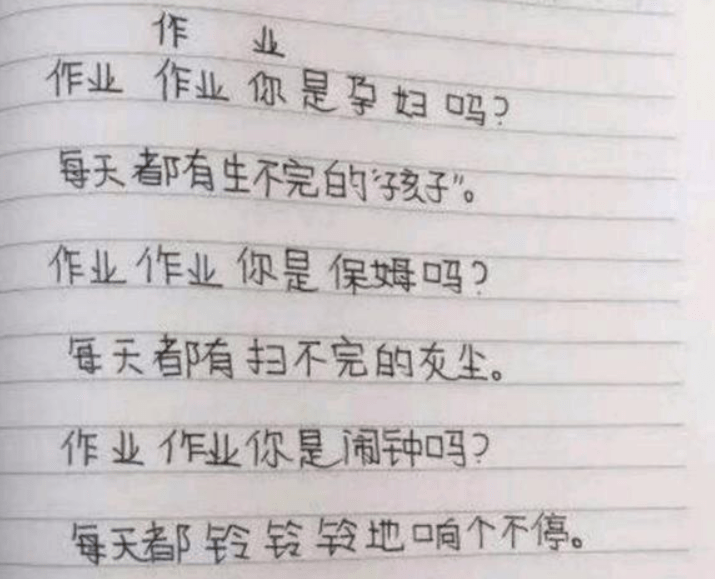 作 业
作业 作业 你是孕妇吗?
每天都有生不完的“孩子”。
作业 作业 你是保姆吗?
每天都有扫不完的灰尘。
作业 作业你是闹钟吗?
每天都铃铃铃地响个不停。